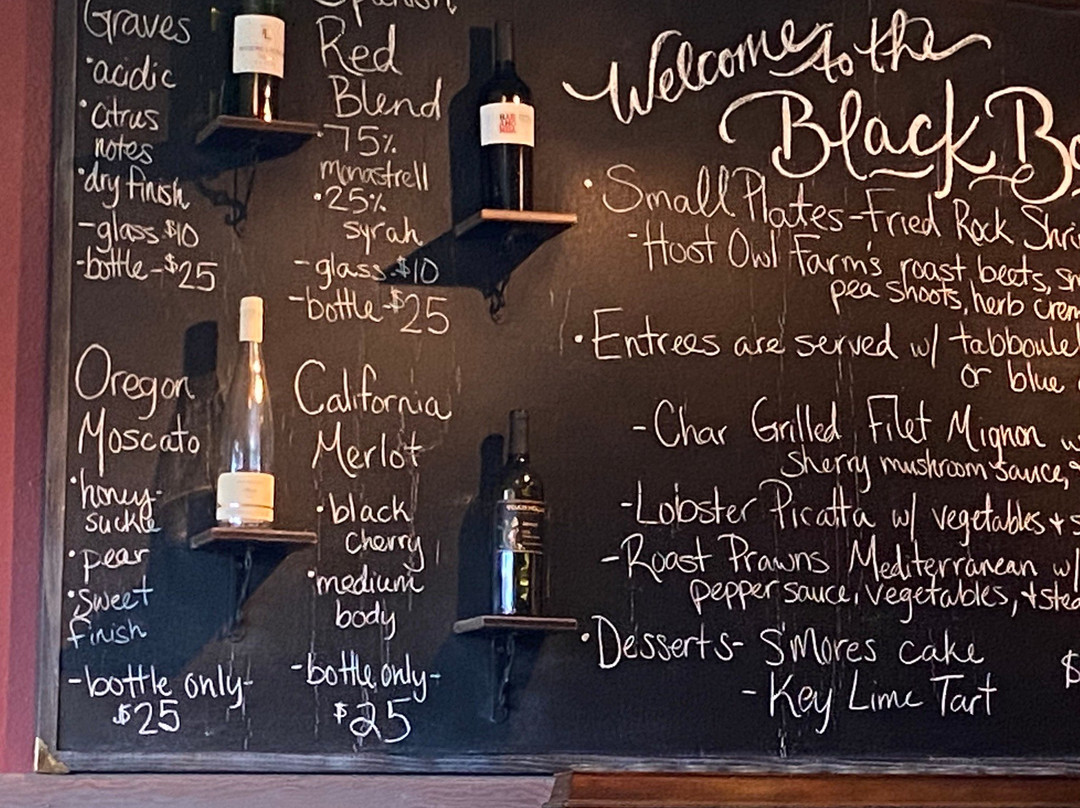 Graves
•acidic
•citrus
notes
•dry finish
-glass $10
-bottle-$25
Spanish
Red
Blend
•75%
monastrell
•25%
syrah
-glass $10
-bottle-$25
Oregon
Moscato
•honey-
suckle
•pear
•sweet
finish
-bottle only-
$25
California
Merlot
•black
cherry
•medium
body
-bottle only-
$25
Welcome to the
Black Bo
•Small Plates-Fried Rock Shri
-Hoot Owl Farm's roast beets, sm
pea shoots, herb crem
•Entrees are served w/ tabboule
or blue
-Char Grilled Filet Mignon w
sherry mushroom sauce,
-Lobster Picatta w/ vegetables + s
-Roast Prawns Mediterranean w/
pepper sauce, vegetables, + stea
•Desserts- S'Mores cake
$
-Key Lime Tart